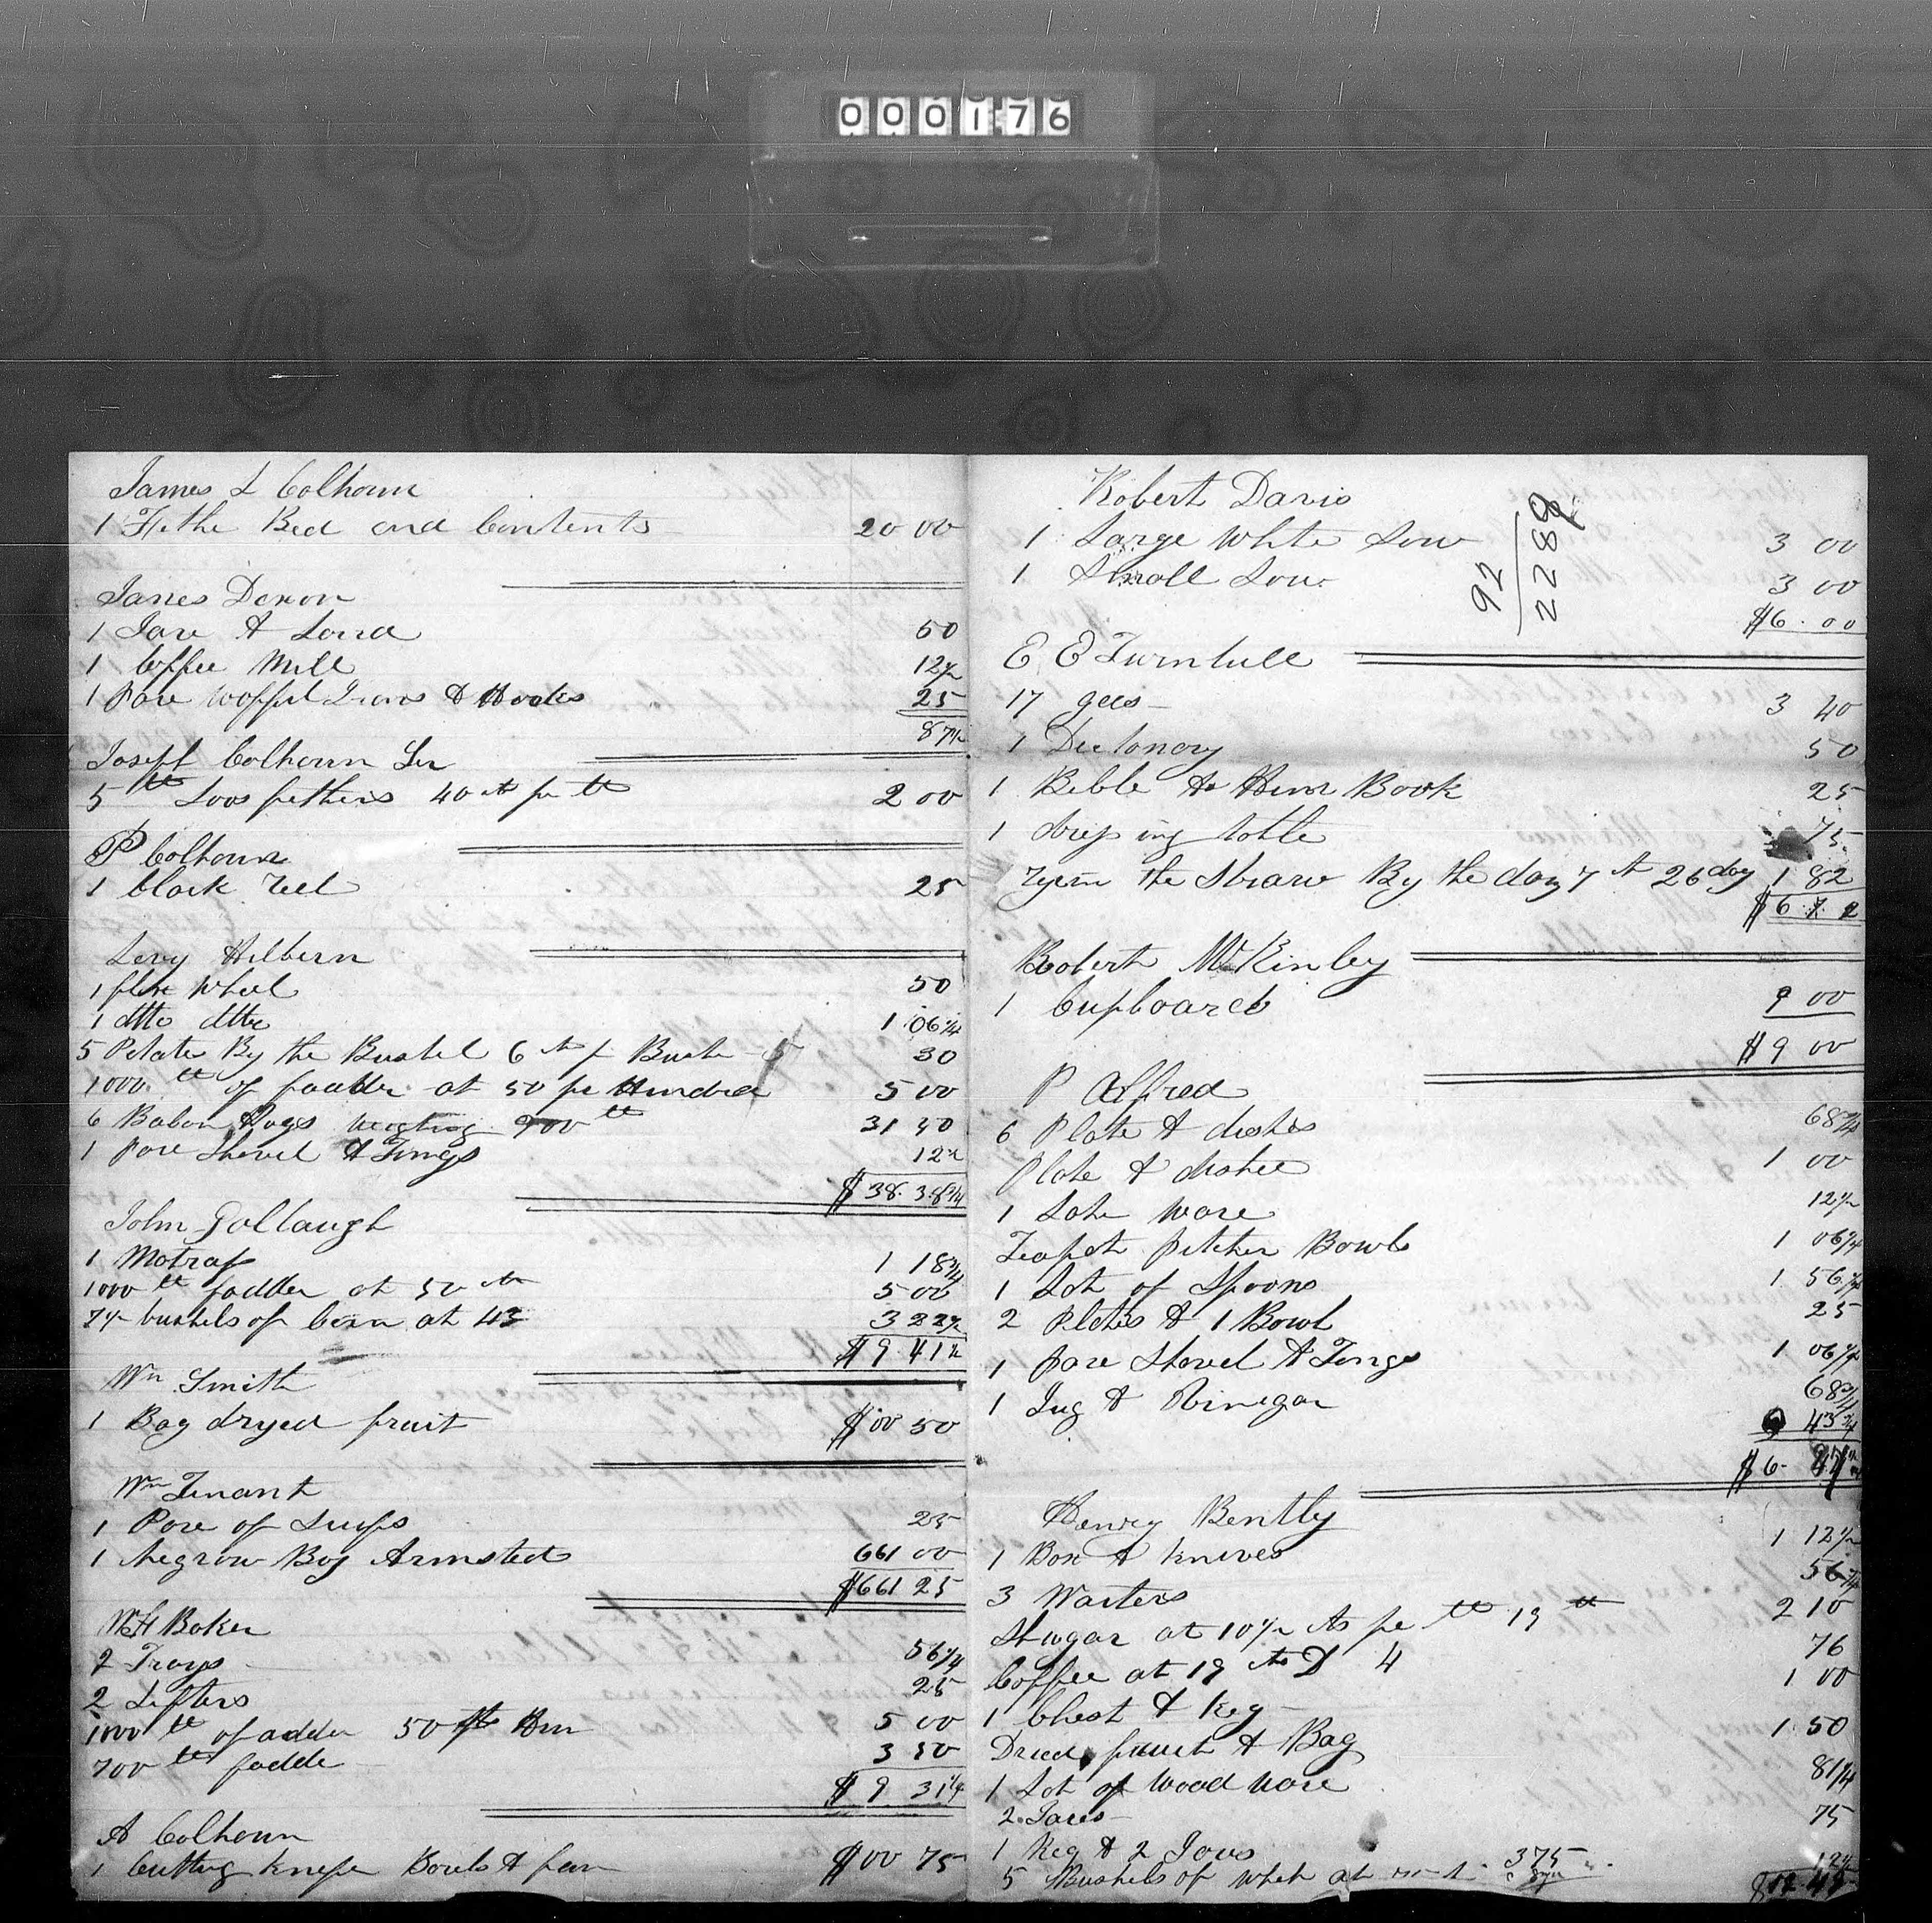 000176
James L Colhoun
1 Fethe Bed and Contents 20 00
James Dexon
1 Jare & Lard 50
1 Coffee Mill 12½
1 Pare woffel Irons & Hooks 25
87½
Joseff Colhoun Sr
5 lb Loos fethers 40 cts pr lb 2 00
P Colhoun
1 Clock reel 25
Levy Hilbern
1 flax Wheel 50
1 ditto ditto 1 06¼
5 Potatoes By the Bushel 6 cts pr Bush 30
1000 lb of fodder at 50 pr Hundred 5 00
6 Bakon Hogs weighing 900 lb 31 50
1 pare Shovel & Tongs 12½
$38.38¾
John Gollaugh
1 Motrap 1 18¾
1000 lb fodder at 50 cts 5 00
7½ bushels of Corn at 43 3 22½
$9.41½
Wm Smith
1 Bag dryed fruit $00 50
Wm Tenant
1 Pare of Sheeps 25
1 Negrow Boy Armsted 661 00
$661 25
W H Boker
2 Trays 56¼
2 Sifters 25
1000 lb of odder 50 pr Hun 5 00
700 lb fodde 3 50
$9 31¼
A Colhoun
1 Cutting knife Bowls & pan $00 75
Robert Davis
1 Large White Sow 3 00
1 Small Sow 3 00
$6.00
92
2289
E E Turnbull
17 gees 3 40
1 Dictonory 50
1 Bible & Him Book 25
1 dressing table 75
the Straw By the day 7 ct 26 day 1 82
$6 7 2
Robert McKinley
1 Cupboard 9 00
$9 00
P Alfred
6 Plate & dishes 68¾
Plate & dishes 1 00
1 Lot ware 12½
Teapot pitcher Bowl 1 06¼
1 Lot of Spoons 1 56¼
2 Plates & 1 Bowl 25
1 pare Shovel & Tongs 1 06¼
1 Jug & Vinegar 68¾
43¾
$6.
Henry Bently
1 Box & knives 1 12½
3 Waiters 56¼
Shugar at 10½ cts pr lb 19 lb 2 10
Coffee at 19 cts D 4 76
1 Chest & Keg 1 00
Dried fruit & Bag 1 50
1 Lot of Wood ware 81¼
2 Jares 75
1 Keg & 2 Jars 12½
5 Bushels of Whet at 375